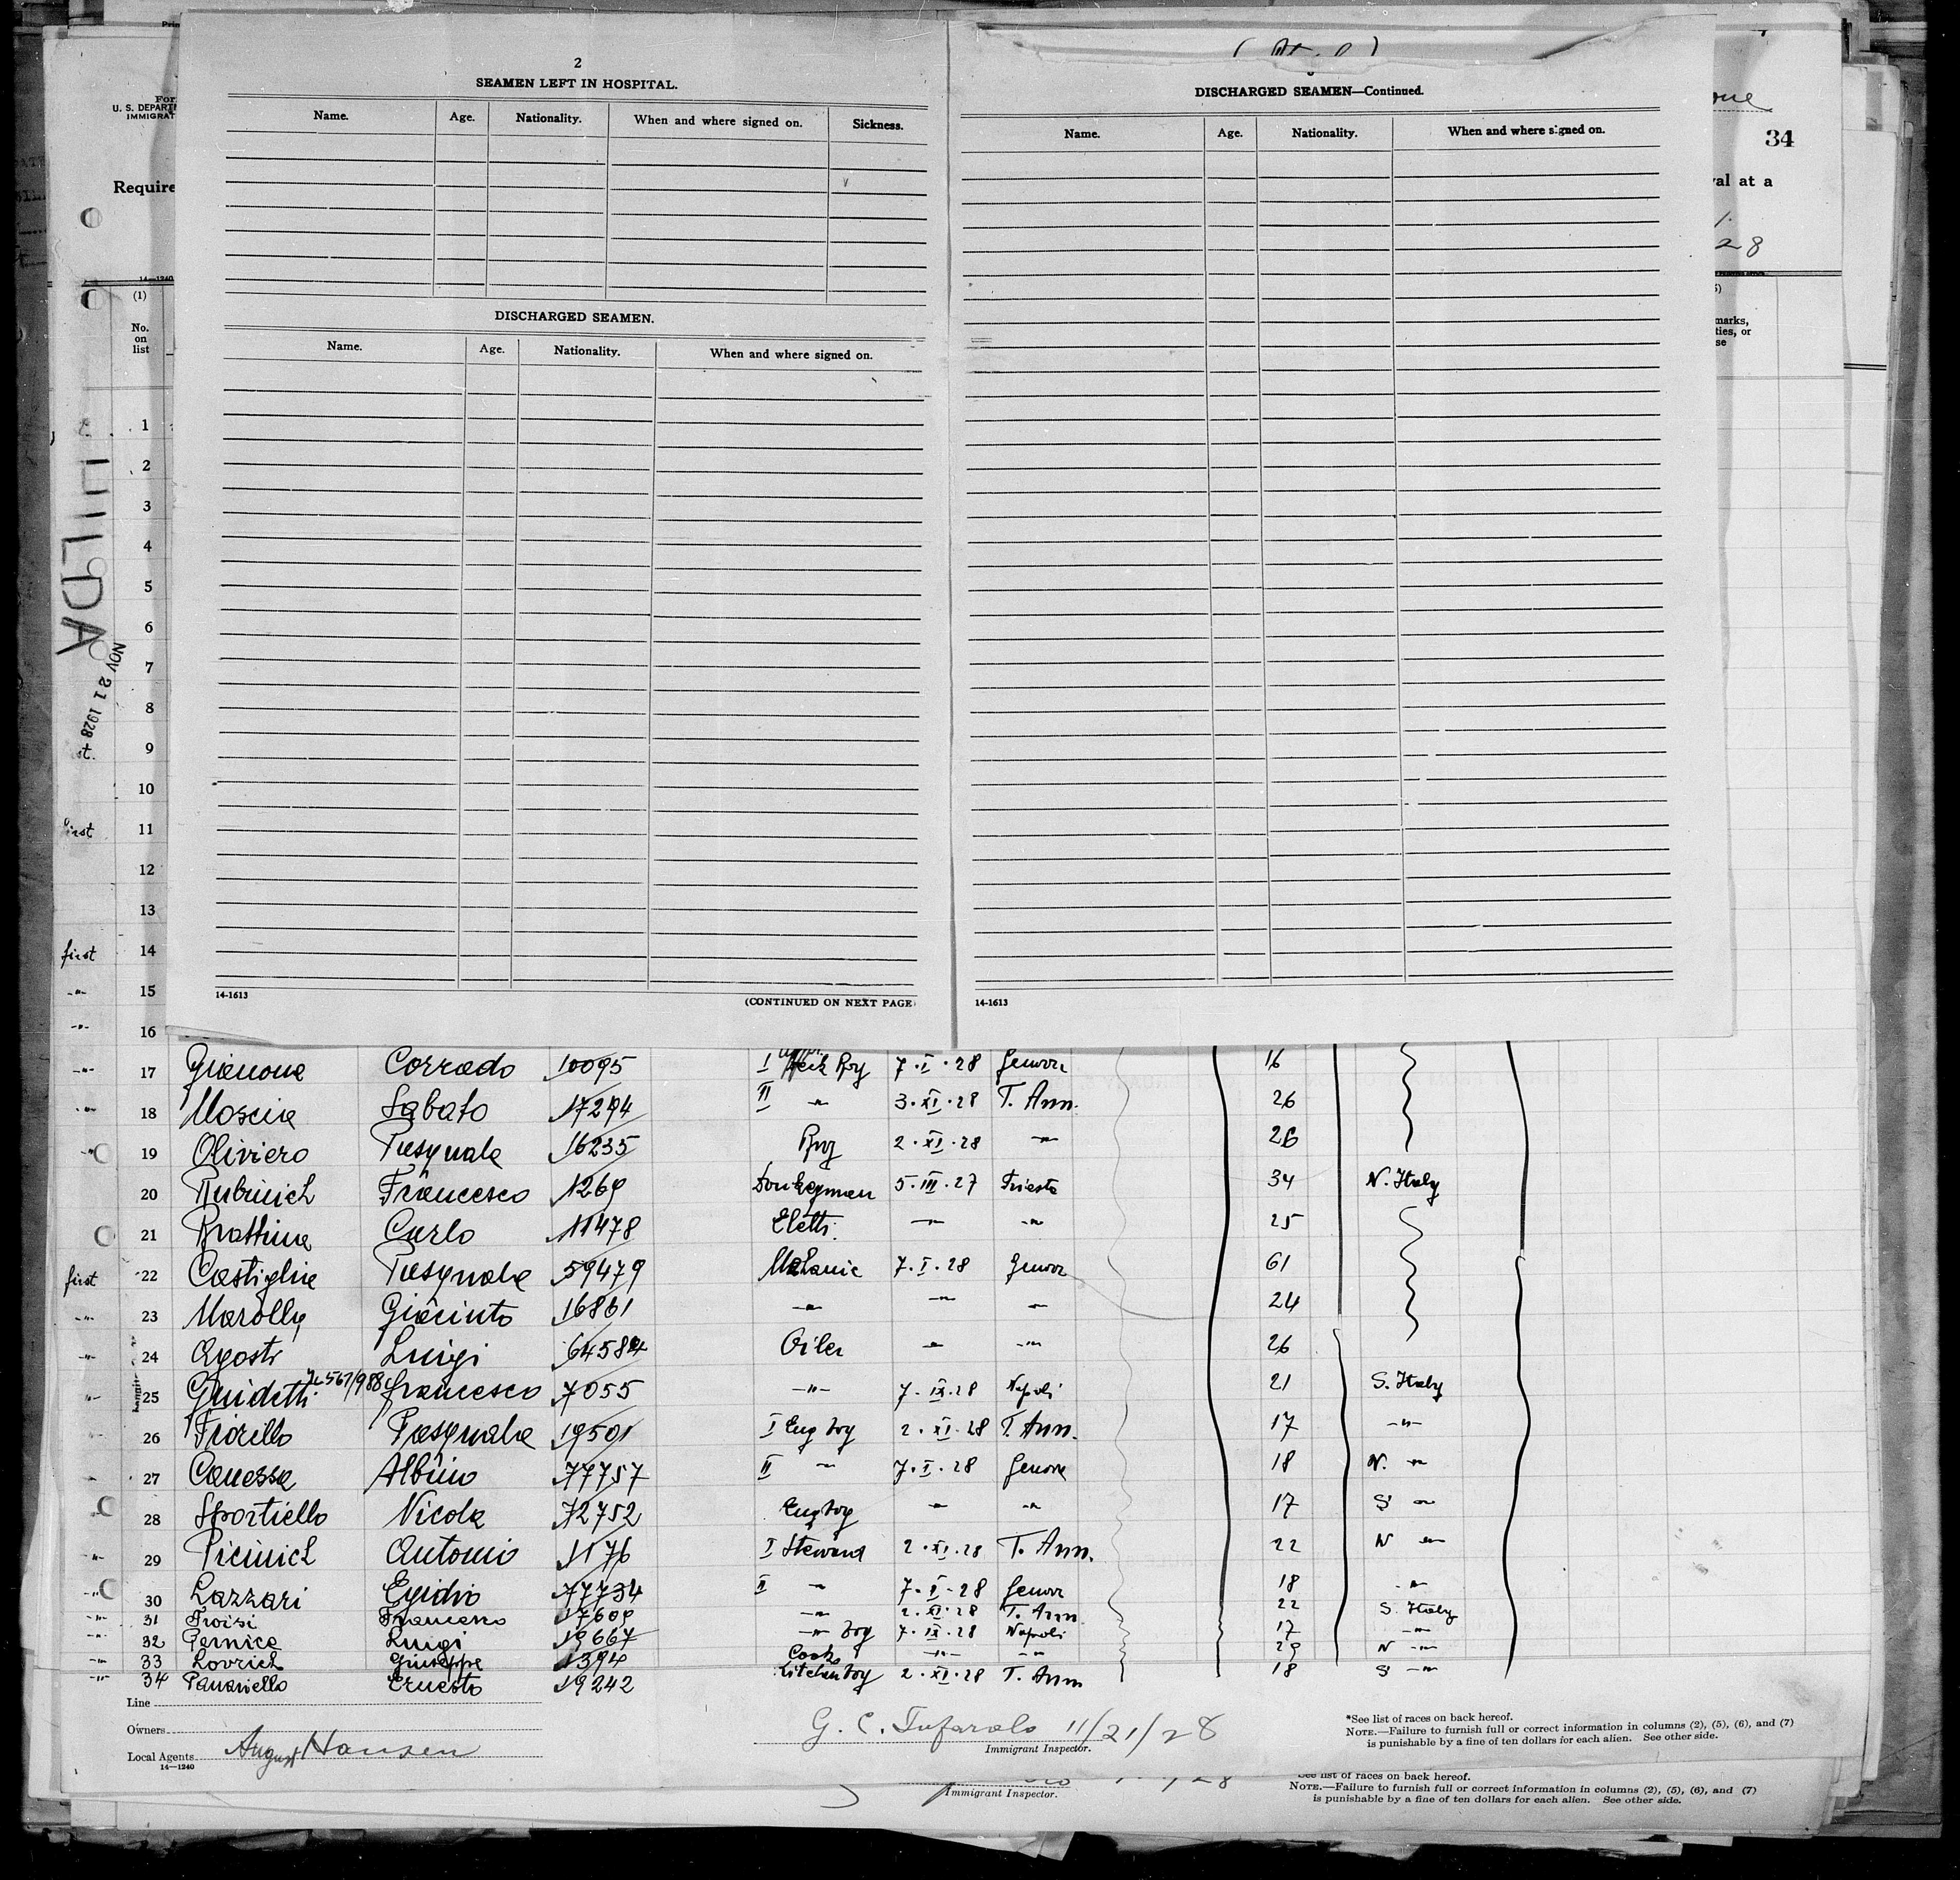 2
SEAMEN LEFT IN HOSPITAL.
Name. Age. Nationality. When and where signed on. Sickness.
DISCHARGED SEAMEN.
Name. Age. Nationality. When and where signed on.
14-1613 (CONTINUED ON NEXT PAGE)
DISCHARGED SEAMEN—Continued.
Name. Age. Nationality. When and where signed on.
14-1613
For
U. S. DEPART
IMMIGRAT
Require
14—1240
(1)
No.
on
list
34
val at a
28
marks,
ties, or
se
NOV 21 1928
1
2
3
4
5
6
7
8
9
10
11
12
13
first 14
-"- 15
-"- 16
-"- 17 Corrado 10095 I 7·I·28 Genova 16
-"- 18 Moscia Sabato 17294 II -"- 3·XI·28 T. Ann. 26
-"- 19 Oliviero Pasquale 16235 Boy 2·XI·28 -"- 26
20 Francesco 1269 Donkeyman 5·III·27 Trieste 34 N. Italy
21 Carlo 11478 Elettr. -"- -"- 25
first 22 Castiglia Pasquale 59479 7·I·28 Genova 61
-"- 23 Giacinto 16861 -"- -"- -"- 24
-"- 24 Agosti Luigi 64584 Oiler -"- -"- 26
-"- 25 Guidetti Francesco 7055 -"- 7·IX·28 Napoli 21 S. Italy
-"- 26 Fiorillo Pasquale 19501 I Eng boy 2·XI·28 T. Ann. 17 -"-
-"- 27 Canessa Albino 77757 II -"- 7·I·28 Genova 18 N. -"-
28 Sportiello Nicola 72752 Eng boy -"- -"- 17 S -"-
-"- 29 Picinich Antonio 1176 I Steward 2·XI·28 T. Ann. 22 N -"-
-"- 30 Lazzari Egidio 77734 II -"- 7·I·28 Genova 18 -"-
-"- 31 Troisi Francesco 17609 -"- 2·XI·28 T. Ann 22 S. Italy
-"- 32 Pernice Luigi 19667 -"- boy 7·IX·28 Napoli 17 -"-
-"- 33 Lovrich Giuseppe 1394 Cook -"- -"- 29 N -"-
-"- 34 Panariello Ernesto 19242 Kitchen boy 2·XI·28 T. Ann 18 S -"-
Line
Owners
Local Agents August Hansen
14—1240
G. C. Tufarolo 11/21/28
Immigrant Inspector.
*See list of races on back hereof.
NOTE.—Failure to furnish full or correct information in columns (2), (5), (6), and (7)
is punishable by a fine of ten dollars for each alien. See other side.
Immigrant Inspector.
See list of races on back hereof.
NOTE.—Failure to furnish full or correct information in columns (2), (5), (6), and (7)
is punishable by a fine of ten dollars for each alien. See other side.